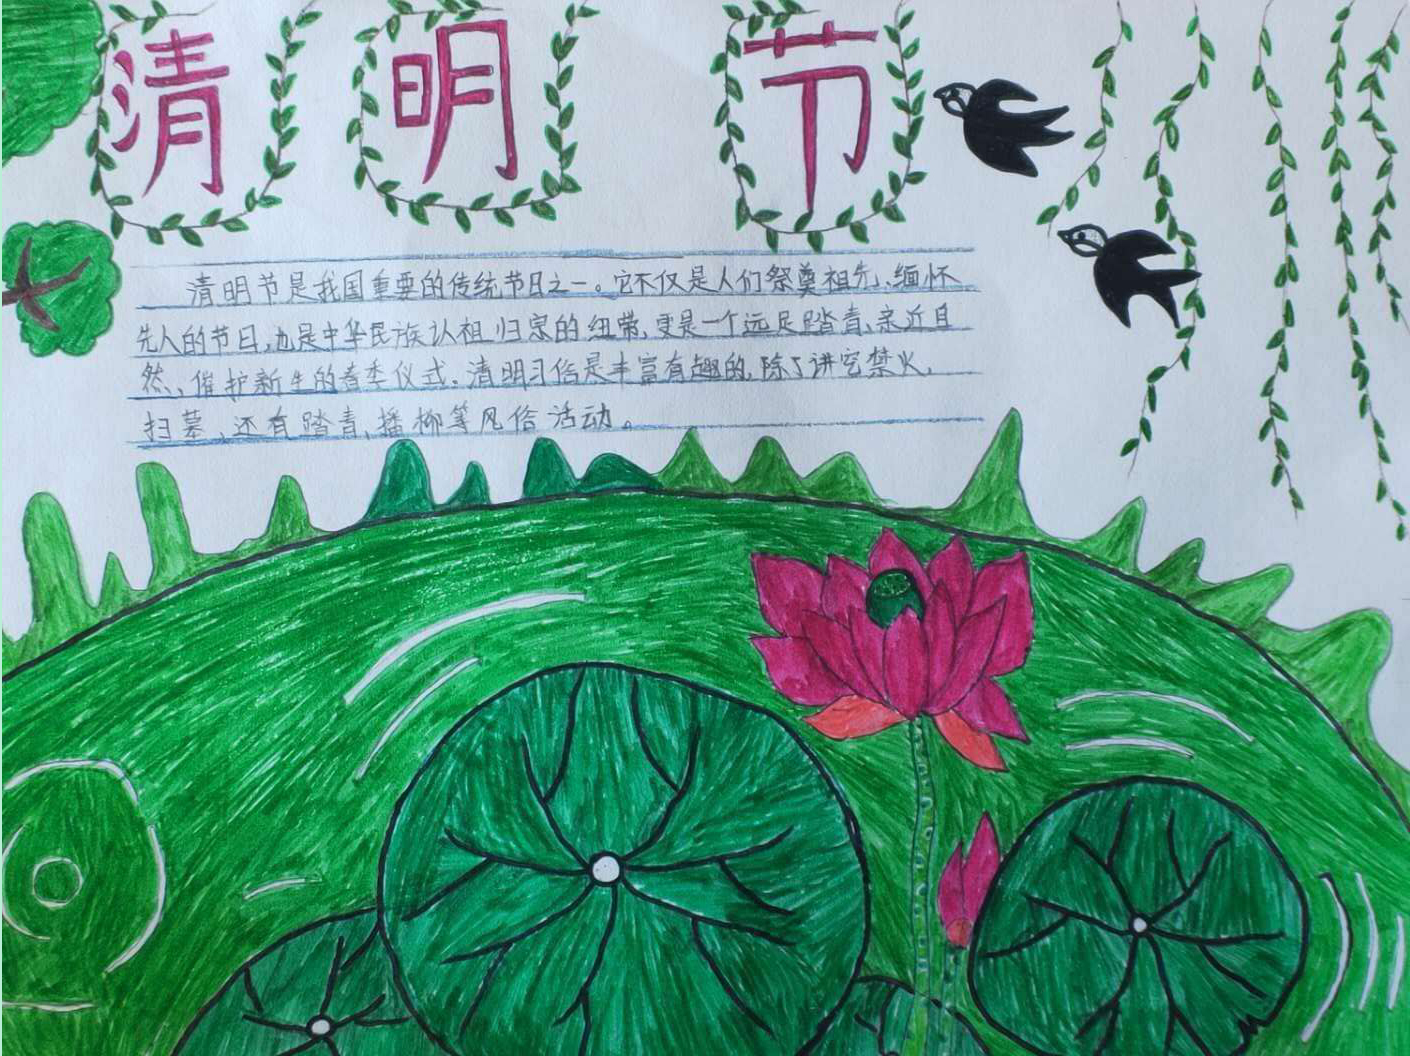 清明节
清明节是我国重要的传统节日之一。它不仅是人们祭奠祖先、缅怀
先人的节日,也是中华民族认祖归宗的纽带,更是一个远足踏青、亲近自
然、催护新生的春季仪式。清明习俗是丰富有趣的,除了讲究禁火、
扫墓、还有踏青、播柳等风俗活动。